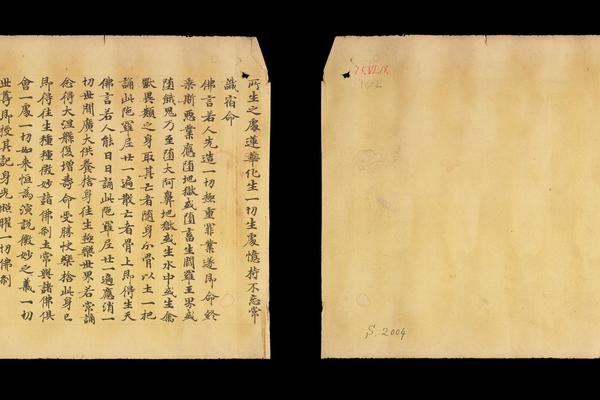 所生之處蓮華化生一切生處憶持不忘常
識宿命
佛言若人先造一切極重罪業遂即命終
乘斯惡業應墮地獄或墮畜生閻羅王界或
墮餓鬼乃至墮大阿鼻地獄或生水中或生禽
獸異類之身取其亡者隨身分骨以土一把
誦此陁羅尼廿一遍散亡者骨上即得生天
佛言若人能日日誦此陁羅尼廿一遍應消一
切世間廣大供養捨身往生極樂世界若常誦
念得大涅槃復增壽命受勝快樂捨此身已
即得往生種種微妙諸佛剎土常與諸佛俱
會一處一切如來恒為演說微妙之義一切
世尊即授其記身光照曜一切佛剎
S. 2004